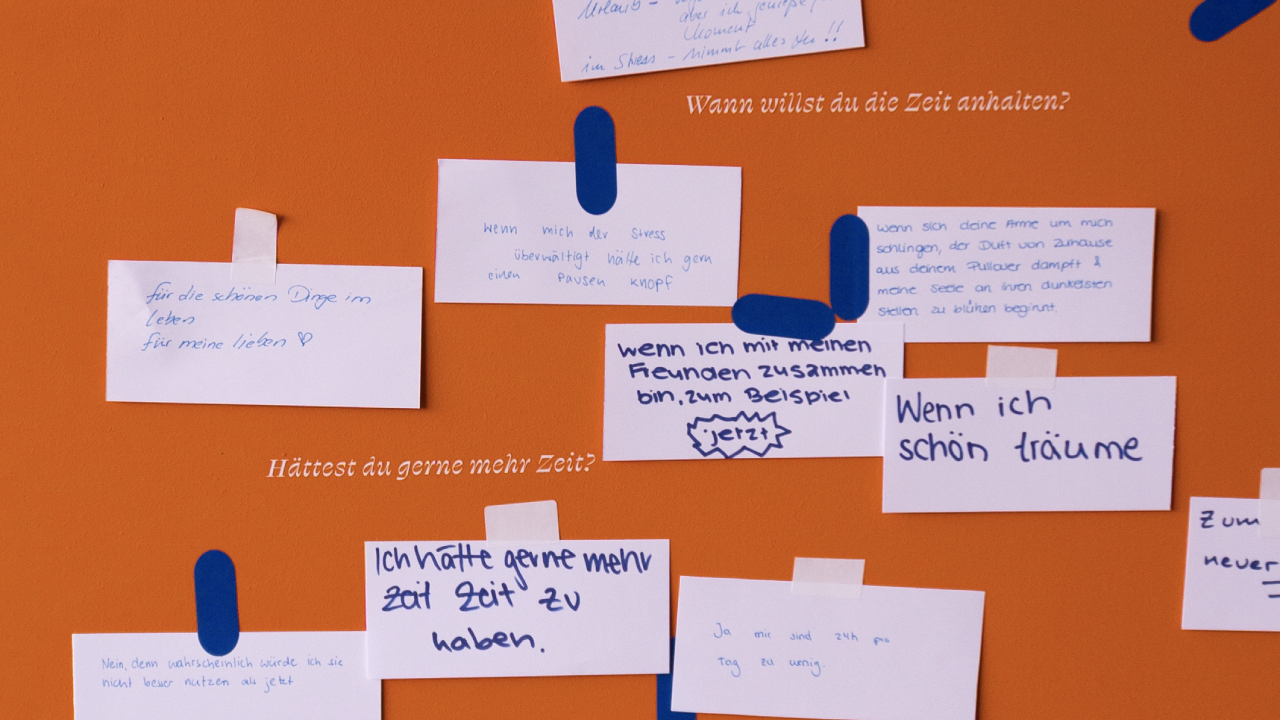 Urlaub –
aber ich genieße
Moment
im Stress – nimmt alles den !!
Wann willst du die Zeit anhalten?
wenn mich der Stress
überwältigt hätte ich gern
einen Pausen knopf
wenn sich deine Arme um mich
schlingen, der Duft von Zuhause
aus deinem Pullover dampft &
meine Seele an ihren dunkelsten
Stellen zu blühen beginnt.
für die schönen Dinge im
leben
für meine lieben ♡
wenn ich mit meinen
Freunden zusammen
bin, zum Beispiel
jetzt
Wenn ich
schön träume
Hättest du gerne mehr Zeit?
Zum
neuer
Ich hätte gerne mehr
zeit Zeit zu
haben.
Ja mir sind 24h pro
Tag zu wenig.
Nein, denn wahrscheinlich würde ich sie
nicht besser nutzen als jetzt